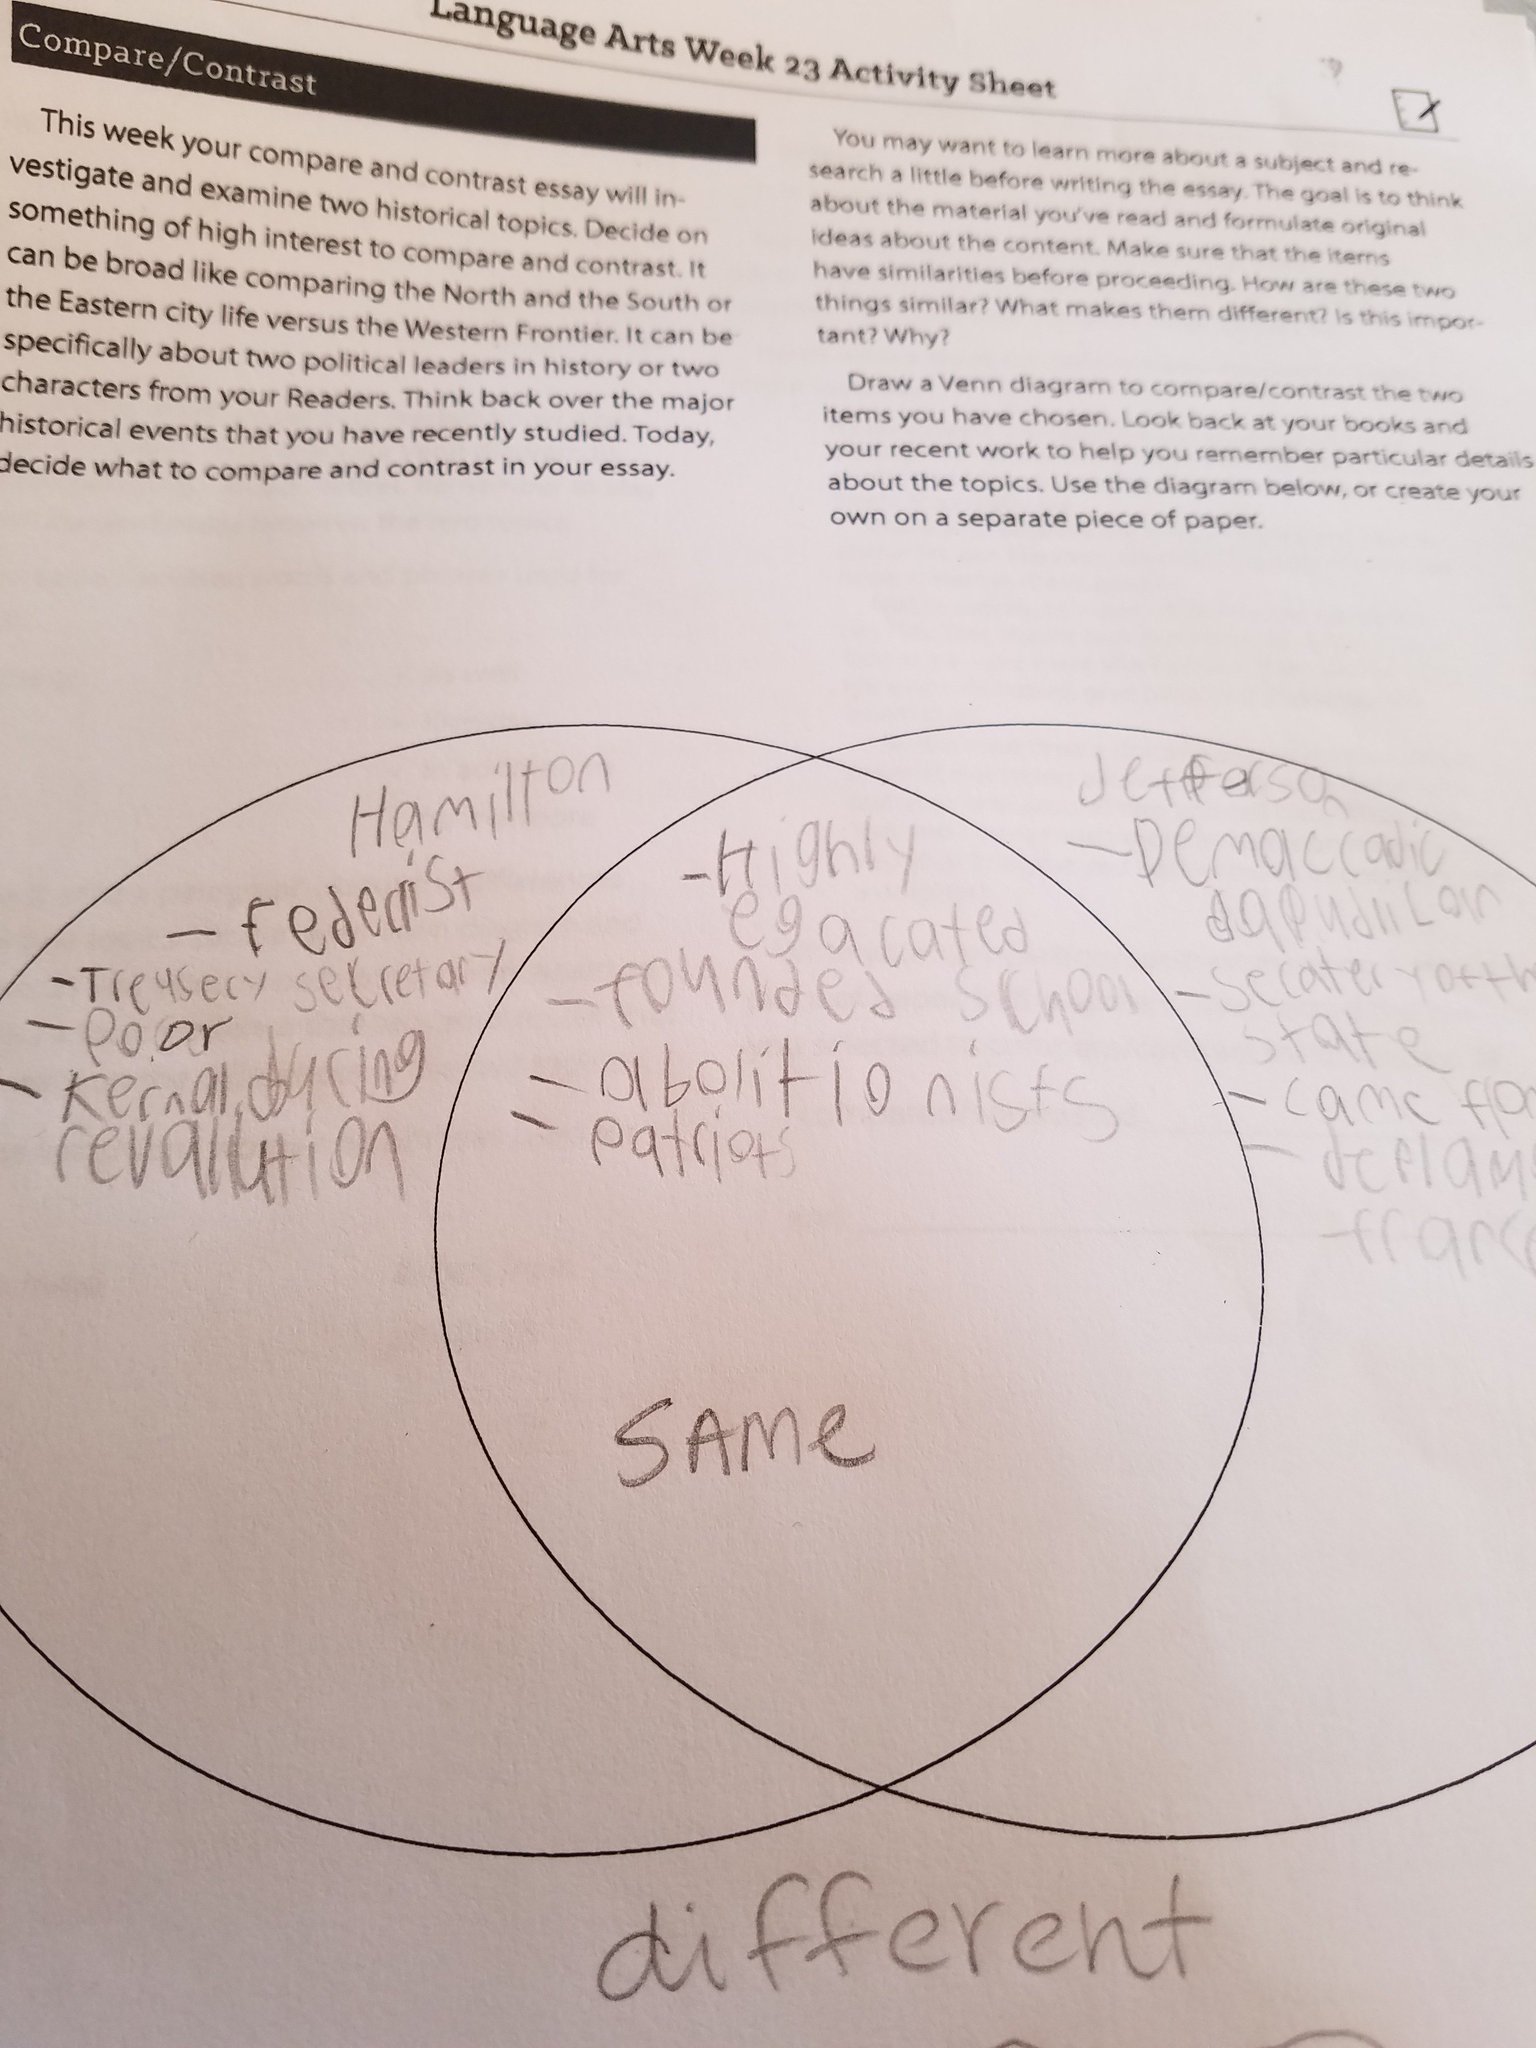 Language Arts Week 23 Activity Sheet
Compare/Contrast
This week your compare and contrast essay will in-
vestigate and examine two historical topics. Decide on
something of high interest to compare and contrast. It
can be broad like comparing the North and the South or
the Eastern city life versus the Western Frontier. It can be
specifically about two political leaders in history or two
characters from your Readers. Think back over the major
historical events that you have recently studied. Today,
decide what to compare and contrast in your essay.
You may want to learn more about a subject and re-
search a little before writing the essay. The goal is to think
about the material you've read and formulate original
ideas about the content. Make sure that the items
have similarities before proceeding. How are these two
things similar? What makes them different? Is this impor-
tant? Why?
Draw a Venn diagram to compare/contrast the two
items you have chosen. Look back at your books and
your recent work to help you remember particular details
about the topics. Use the diagram below, or create your
own on a separate piece of paper.
Hamilton
-
- Treysery secretary
- Poor
- Kernal during
revallution
- Highly
egacated
- founded school
- abolitionists
- patriots
SAMe
Jefferson
- Demaccadic
- secatery of th
state
- came
-
different